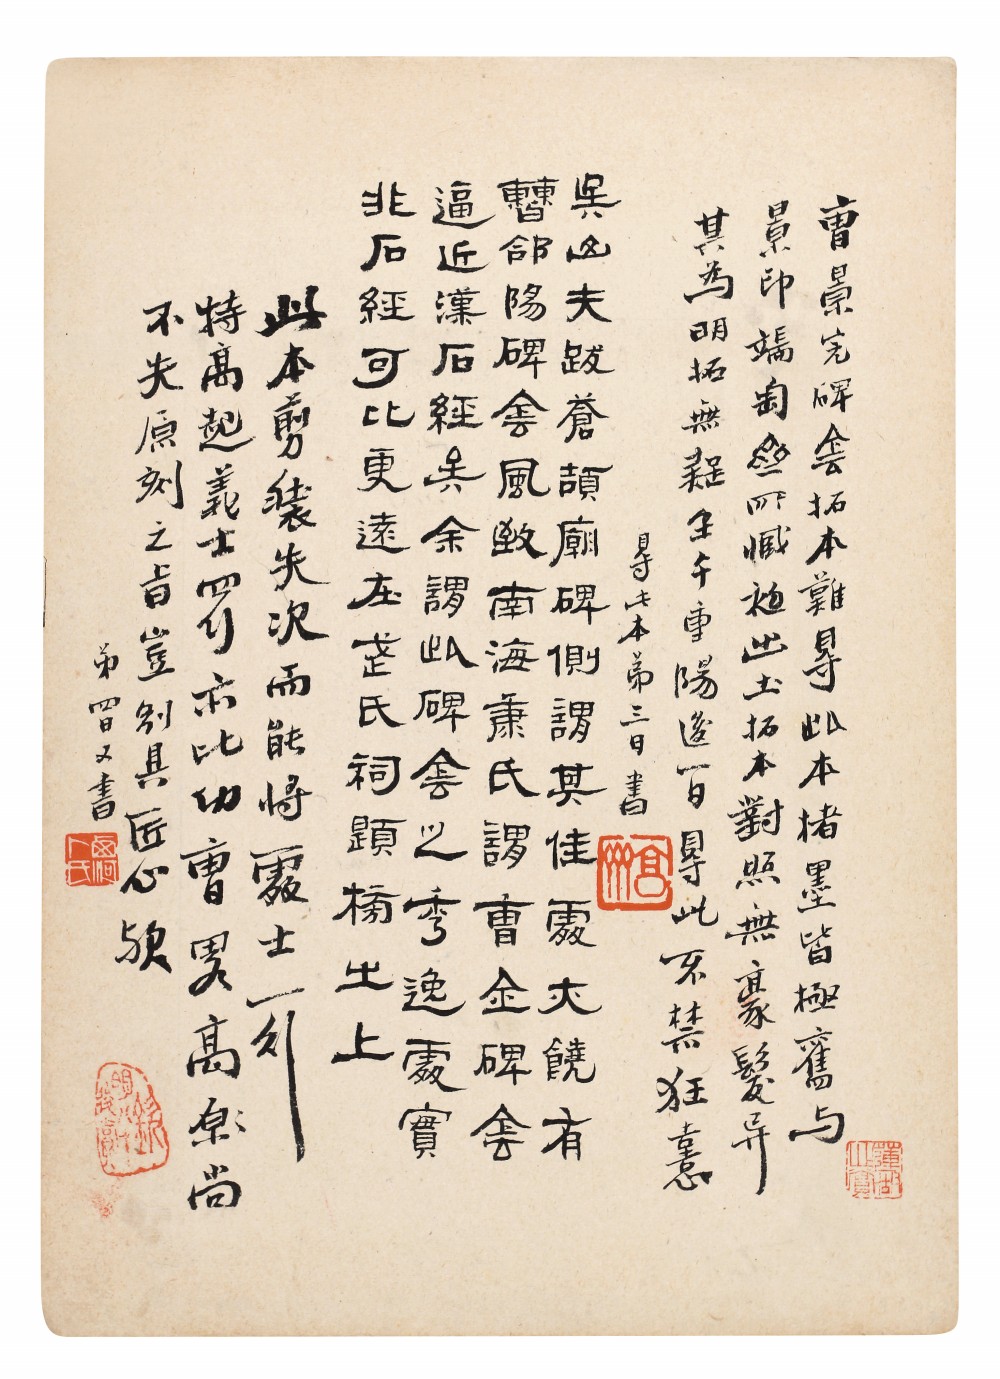 曹景完碑侌拓本難尋此本楮墨皆極舊与
景印端匋丝所臧初出土拓本對照無豪髮异
其為明拓無疑壬午重陽後一百尋此不禁狂憙
尋此本第三日書
吳山夫跋蒼頡廟碑側謂其佳處大饒有
曹郃陽碑侌風致南海康氏謂曹全碑侌
逼近漢石經吳余謂此碑侌之秀逸處實
非石經可比更遠在武氏祠題榜之上
此本剪裝失次而能將處士一列
特高起義士四列亦比功曹畧高原尚
不失原刻之旨豈別具匠心歟
第四日又書